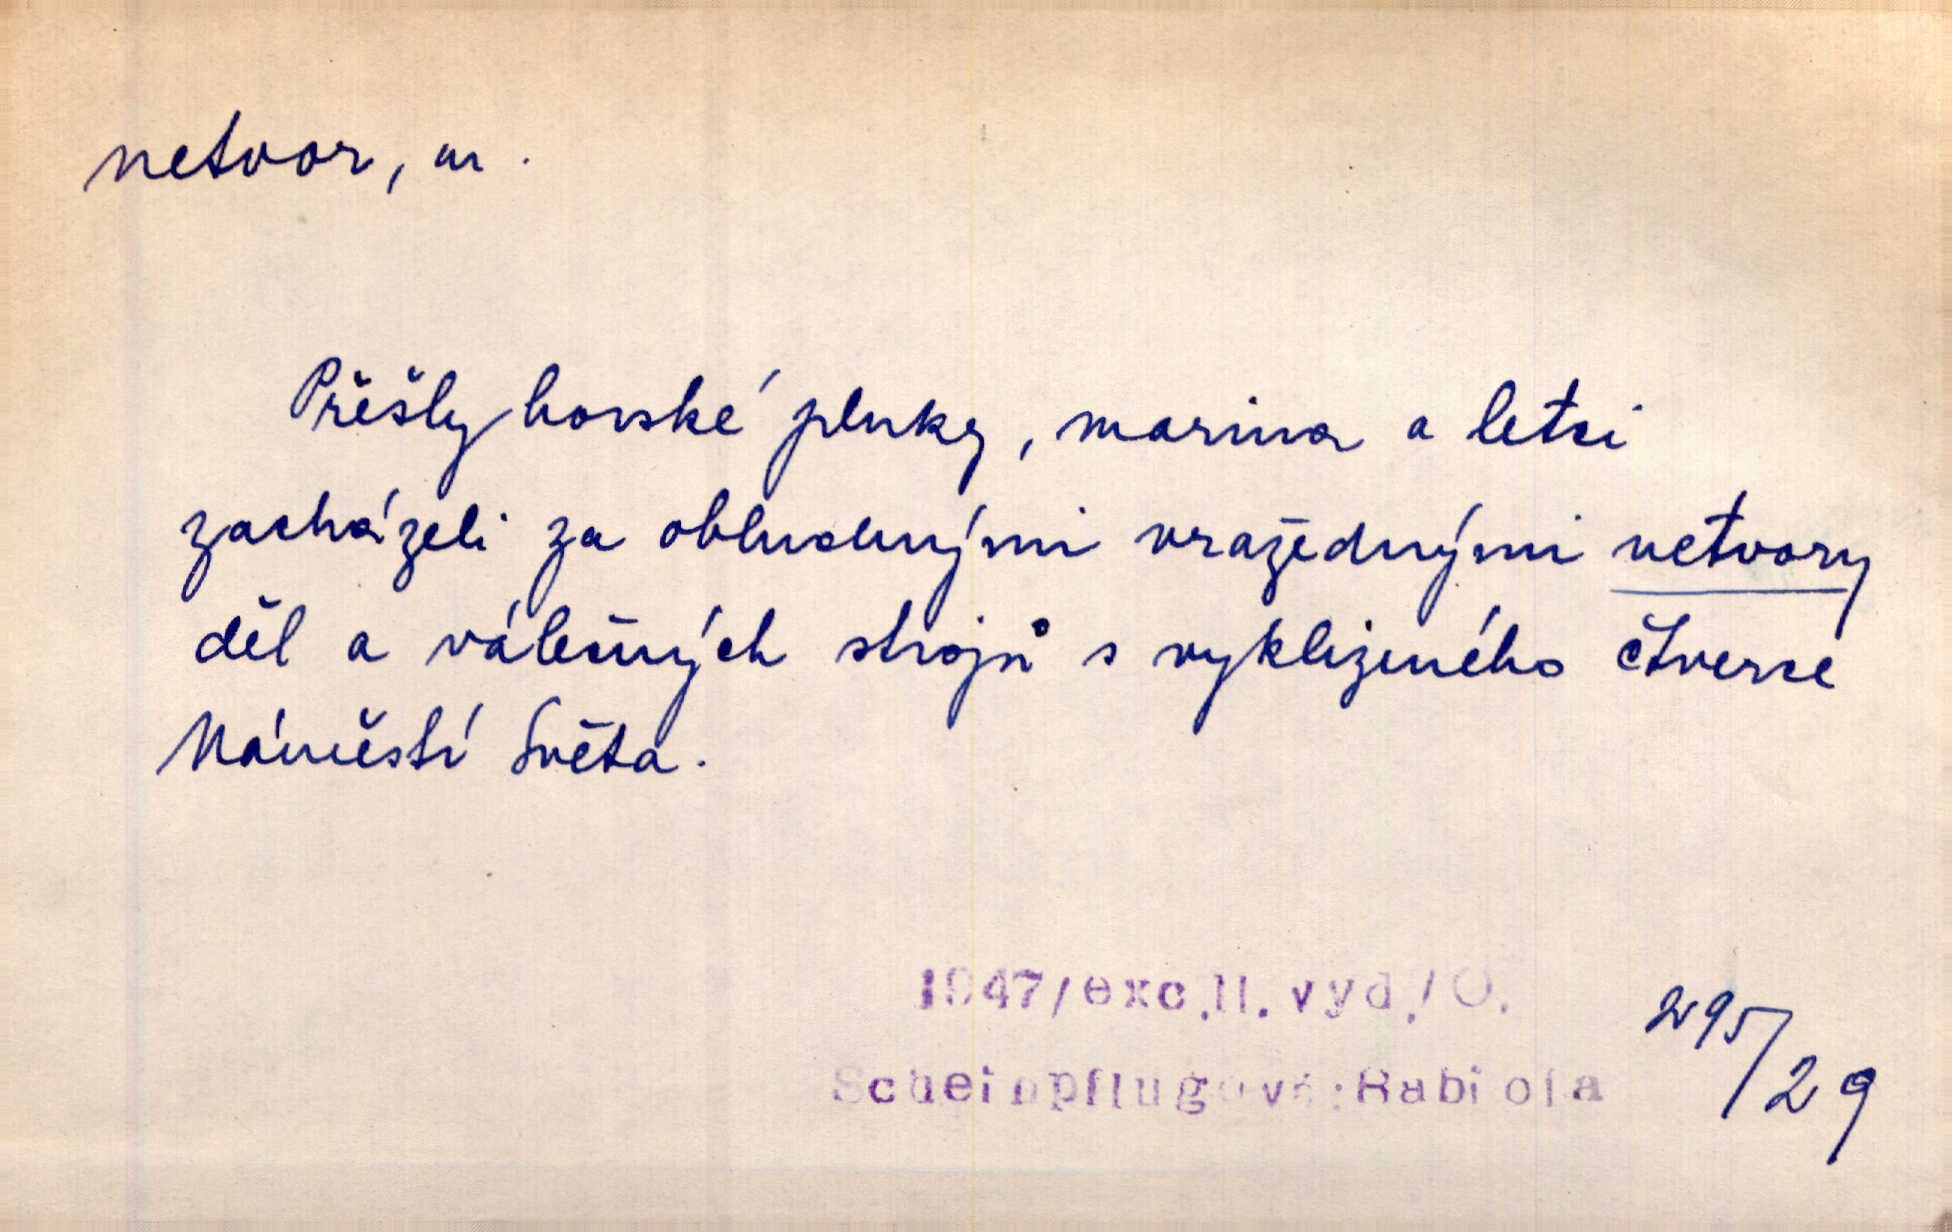 netvor, m.
Přěšly horské pluky, marina a letci
zacházeli za obludnými vražednými netvory
děl a válečných strojů s vyklizeného čtverce
Náměstí Světa.
1947/exc.II.vyd./O.
Scheinpflugová:Babiola
295/29